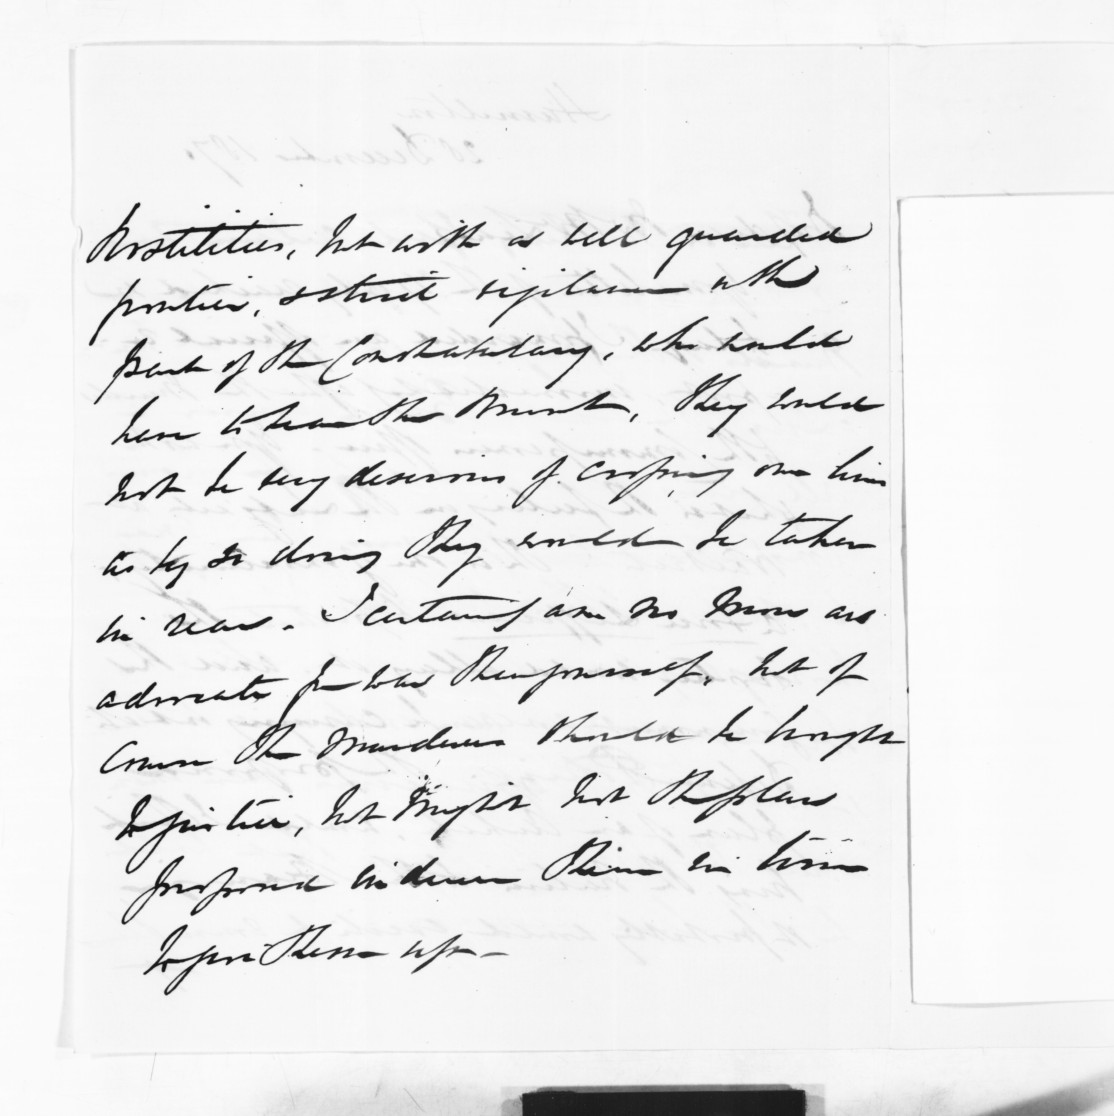 hostilities, but with a well guarded
frontier, & strict vigilance on the
part of the Constabulary, who would
have to leave the Mount, they would
not be very desirous of crossing our lines
as by so doing they would be taken
in rear. I certainly am no more an
advocate for war than yourself, but of
course the murderers should be brought
to justice, but might not the plan
proposed induce them in time
to give them up –